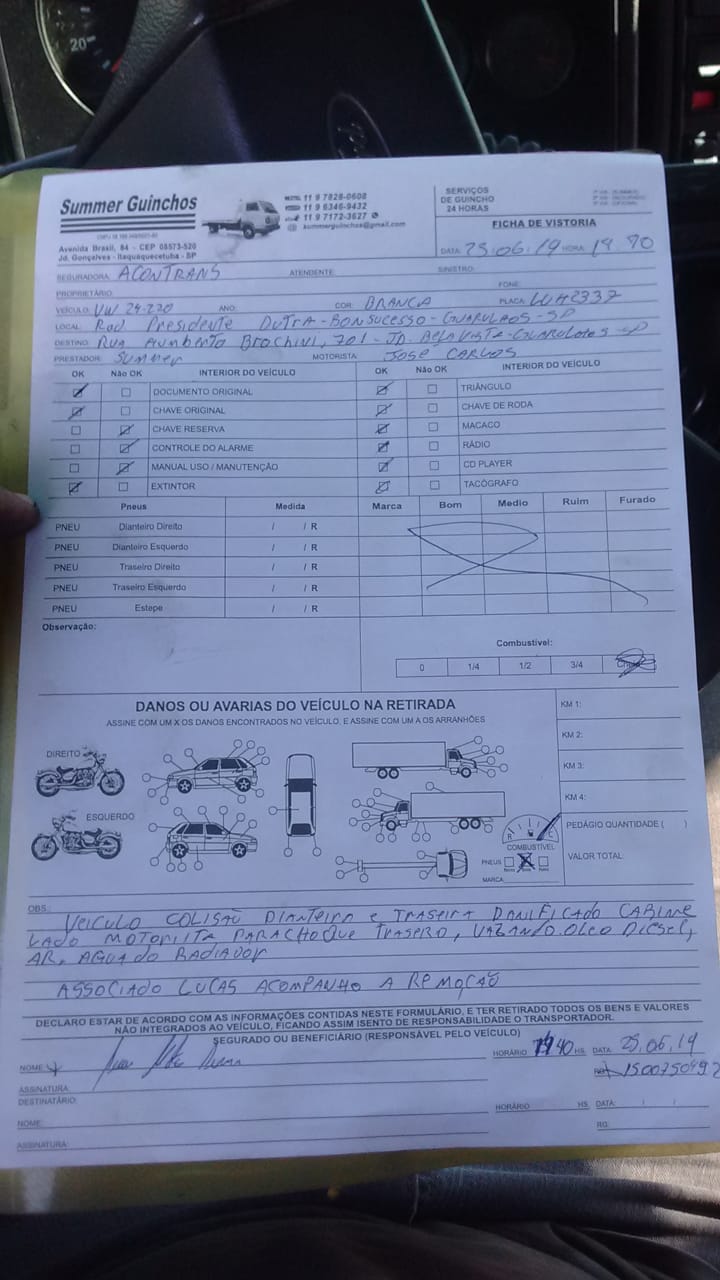 20
Summer Guinchos
Avenida Brasil, 84 - CEP 08573-520
Jd. Gonçalves - Itaquaquecetuba - SP
11 9 7828-0608
11 9 6346-9432
11 9 7172-3627
summerguinchos@gmail.com
SERVIÇOS
DE GUINCHO
24 HORAS
FICHA DE VISTORIA
DATA: 25.06.19 HORA:
SEGURADORA: ACONTRANS ATENDENTE: SINISTRO:
PROPRIETÁRIO: FONE:
VEÍCULO: VW 24-220 ANO: COR: BRANCA PLACA:
LOCAL: Rod Presidente DUTRA - BONSUCESSO - GUARULHOS - SP
DESTINO: RUA 701 - JD. BELA VISTA - GUARULHOS - SP
PRESTADOR: SUMMER MOTORISTA: JOSE CARLOS
OK Não OK INTERIOR DO VEÍCULO OK Não OK INTERIOR DO VEÍCULO
DOCUMENTO ORIGINAL TRIÂNGULO
CHAVE ORIGINAL CHAVE DE RODA
CHAVE RESERVA MACACO
CONTROLE DO ALARME RÁDIO
MANUAL USO / MANUTENÇÃO CD PLAYER
EXTINTOR TACÓGRAFO
Pneus Medida Marca Bom Medio Ruim Furado
PNEU Dianteiro Direito / / R
PNEU Dianteiro Esquerdo / / R
PNEU Traseiro Direito / / R
PNEU Traseiro Esquerdo / / R
PNEU Estepe / / R
Observação:
Combustível:
0 1/4 1/2 3/4
DANOS OU AVARIAS DO VEÍCULO NA RETIRADA
ASSINE COM UM X OS DANOS ENCONTRADOS NO VEÍCULO, E ASSINE COM UM A OS ARRANHÕES
DIREITO
ESQUERDO
KM 1:
KM 2:
KM 3:
KM 4:
PEDÁGIO QUANTIDADE ( )
VALOR TOTAL:
R
COMBUSTÍVEL
PNEUS
MARCA
OBS.:
VEICULO COLISAÕ DIANTEIRO e TRASEIRA DANIFICADO CABINE
LADO MOTORISTA PARACHOQUE TRASERO, VAZANDO OLEO DIESEL,
AR, AGUA do RADIADOR
ASSOCIADO LUCAS ACOMPANHO A REMOÇÃO
DECLARO ESTAR DE ACORDO COM AS INFORMAÇÕES CONTIDAS NESTE FORMULÁRIO, E TER RETIRADO TODOS OS BENS E VALORES
NÃO INTEGRADOS AO VEÍCULO, FICANDO ASSIM ISENTO DE RESPONSABILIDADE O TRANSPORTADOR.
SEGURADO OU BENEFICIÁRIO (RESPONSÁVEL PELO VEÍCULO)
NOME: HORÁRIO HS. DATA: 25.06.19
ASSINATURA: RG:
DESTINATÁRIO: HORÁRIO HS. DATA: / /
NOME: RG:
ASSINATURA: